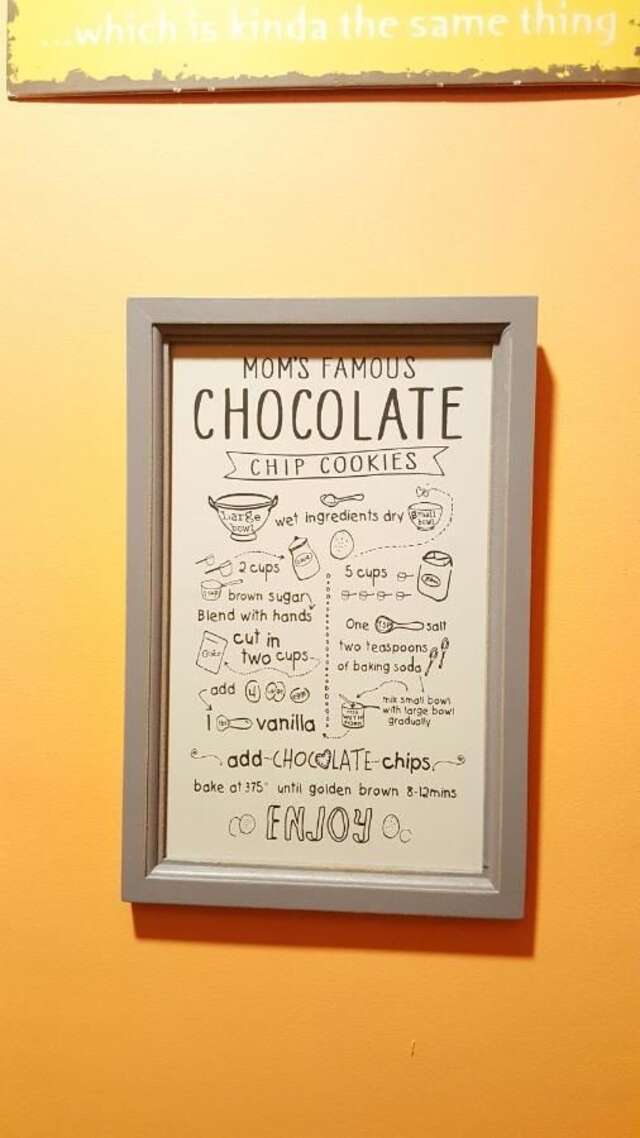 ...which is kinda the same thing
MOM'S FAMOUS
CHOCOLATE
CHIP COOKIES
Large bowl
wet ingredients dry
Small bowl
2 cups
brown sugar
Blend with hands
cut in
two cups
add 4
1 vanilla
5 cups
One TSP salt
two teaspoons
of baking soda
mix small bowl
with large bowl
gradually
add CHOCOLATE chips
bake at 375° until golden brown 8-12mins
ENJOY